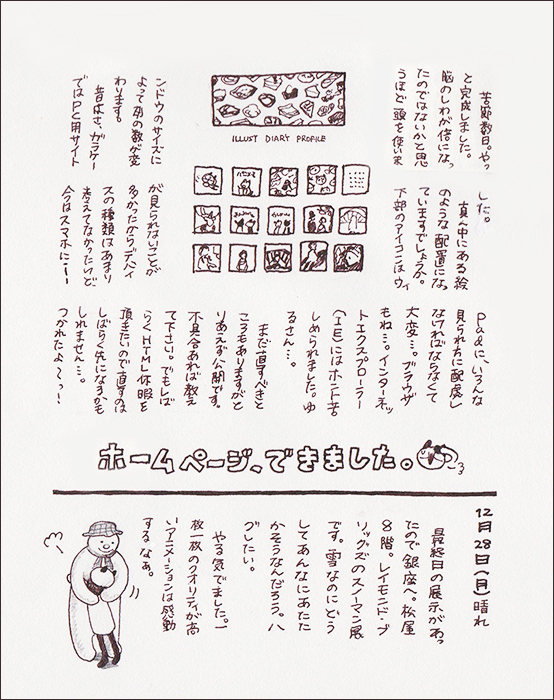 苦節数日。やっ
と完成しました。
脳のしわが倍になっ
たのではないかと思
うほど頭を使いま
した。
真ん中にある絵
のような配置になっ
ていますでしょうか。
下部のアイコンはウィ
ILLUST DIARY PROFILE
ンドウのサイズに
よって列の数が変
わります。
昔はさ、ガラケー
ではPC用サイト
が見られないことが
多かったからデバイ
スの種類はあまり
考えてなかったけど
今はスマホにi-
Padに、いろんな
見られ方に配慮し
なければならなくて
大変…。ブラウザ
もね…。インターネッ
トエクスプローラー
(IE)にはホント苦
しめられました。ゆ
るさん…。
まだ直すべきと
ころもありますがと
りあえず公開です。
不具合あれば教え
て下さい。でもしば
らくHTML休暇を
頂きたいので直すのは
しばらく先になるかも
しれません…。
つかれたよ〜っ!
ホームページ、できました。
12月28日(月)晴れ
最終日の展示があっ
たので銀座へ。松屋
8階。レイモンド・ブ
リッグズのスノーマン展
です。雪なのにどう
してあんなにあたた
かそうなんだろう。ハ
グしたい。
やる気でました。一
枚一枚のクオリティが高
いアニメーションは感動
するなぁ。